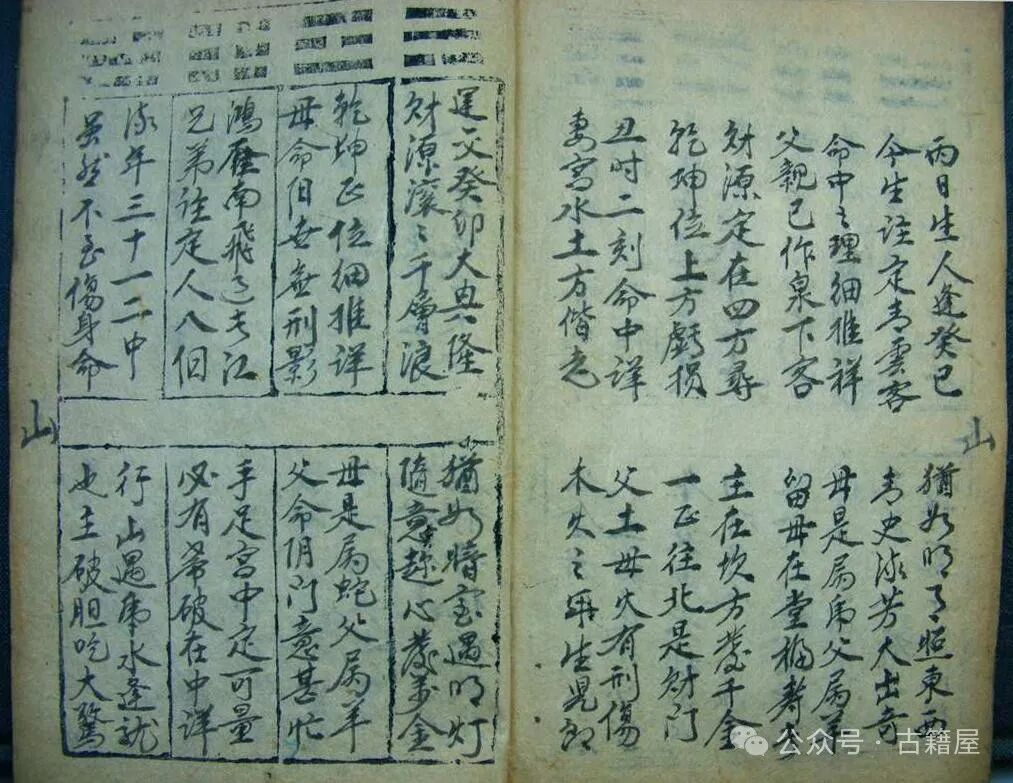 丙日生人逢癸巳
猶如明月照東西
今生註定青雲客
青史流芳大出奇
命中之理細推祥
母是属虎父属羊
父親已作泉下客
留母在堂福寿
財源定在四方尋
主在坎方發千金
乾坤位上方虧损
一正往北是财门
丑时二刻命中详
父土母火有刑傷
妻宮水土方偕老
木火之年生児郎
山
運交癸卯大興隆
猶如暗室遇明灯
财源滚々千層浪
隨意趁心發萬金
乾坤正位細推详
母是属蛇父属羊
母命阳安無刑影
父命阴门意甚忙
鴻雁南飛过去江
手足宮中定可量
兄弟註定人八個
必有帶破在中详
流年三十一二中
行山遇虎水逢龍
虽然不至傷身命
也主破胆吃大驚
山
公众号·古籍屋